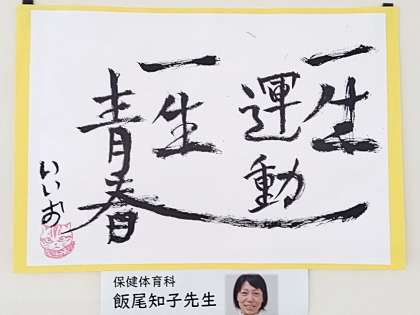 一生
運動
一生
青春
いいお
保健体育科
飯尾知子先生